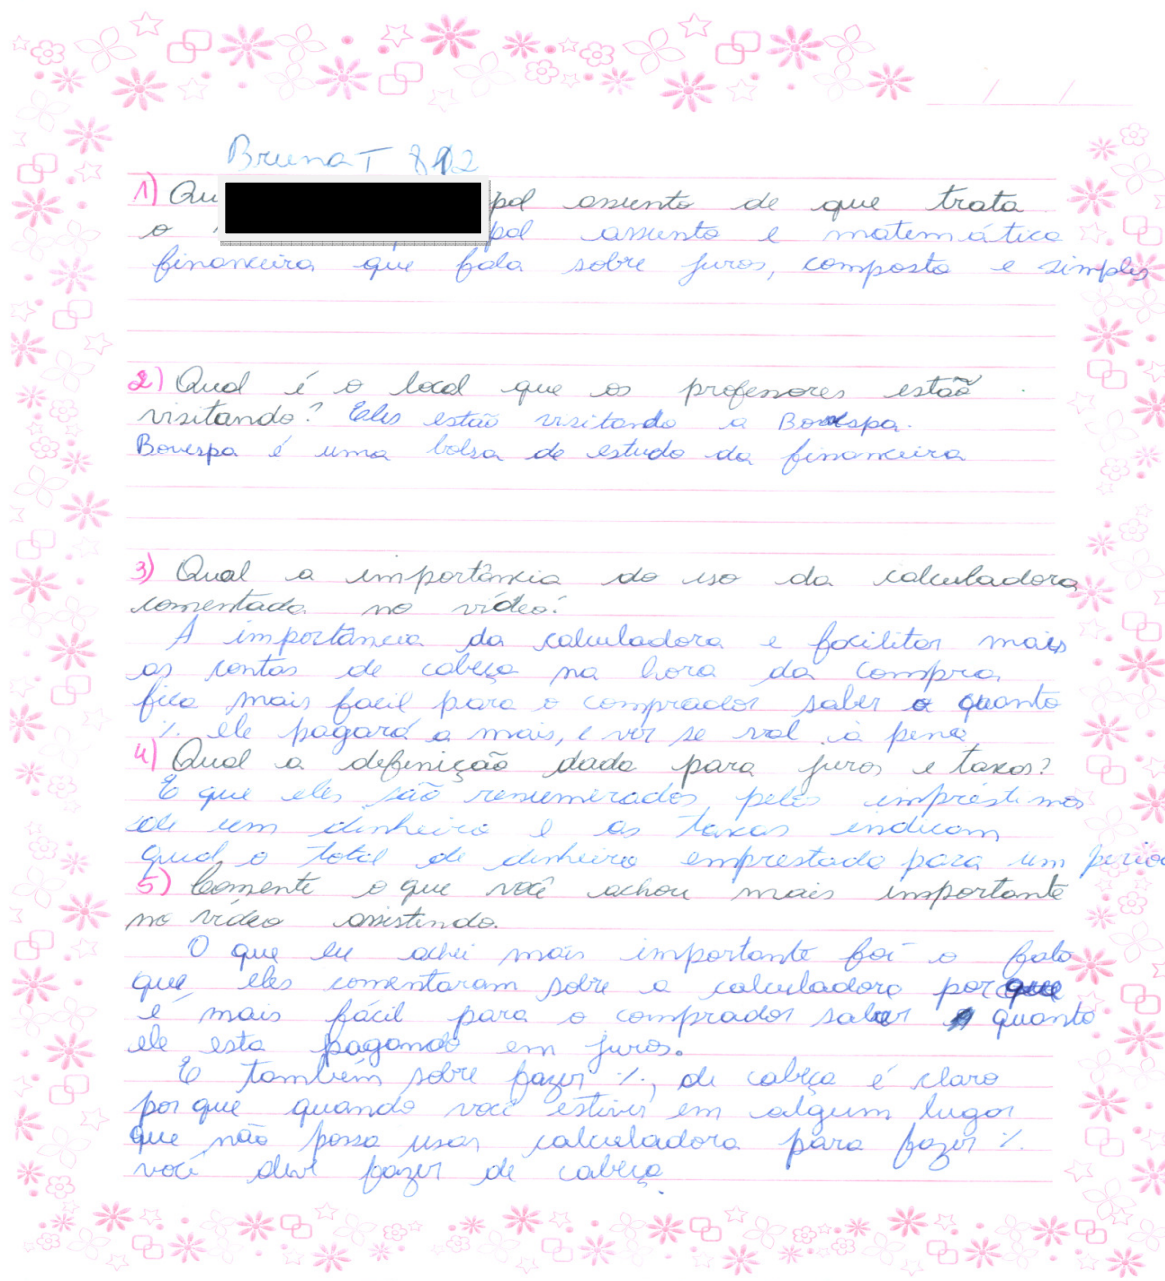 Bruna T 812
1) Qu pal assunto de que trata
o pal assunto e matemática
financeira que fala sobre juros, composto e simples
2) Qual é o local que os professores estão
visitando? Eles estão visitando a Bovespa.
Bovespa é uma bolsa de estudo da financeira
3) Qual a importância do uso da calculadora
comentada no vídeo?
A importância da calculadora e facilitar mais
as contas de cabeça na hora da compra,
fica mais facil para o comprador saber o quanto
% ele pagará a mais, e ver se val a pena
4) Qual a definição dada para juros e taxas?
E que eles são renumerados pelos impréstimos
de um dinheiro e as taxas indicam
qual o total de dinheiro emprestado para um
5) Comente o que você achou mais importante
no vídeo assistindo.
O que eu achei mais importante foi o fato
que eles comentaram sobre a calculadora porque
é mais fácil para o comprador saber quanto
ele esta pagando em juros.
E também sobre fazer %, de cabeça é claro
por que quando você estiver em algum lugar
que não possa usar calculadora para fazer %
você deve fazer de cabeça.